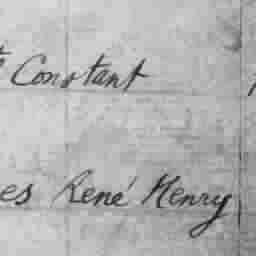 Constant
es René Henry